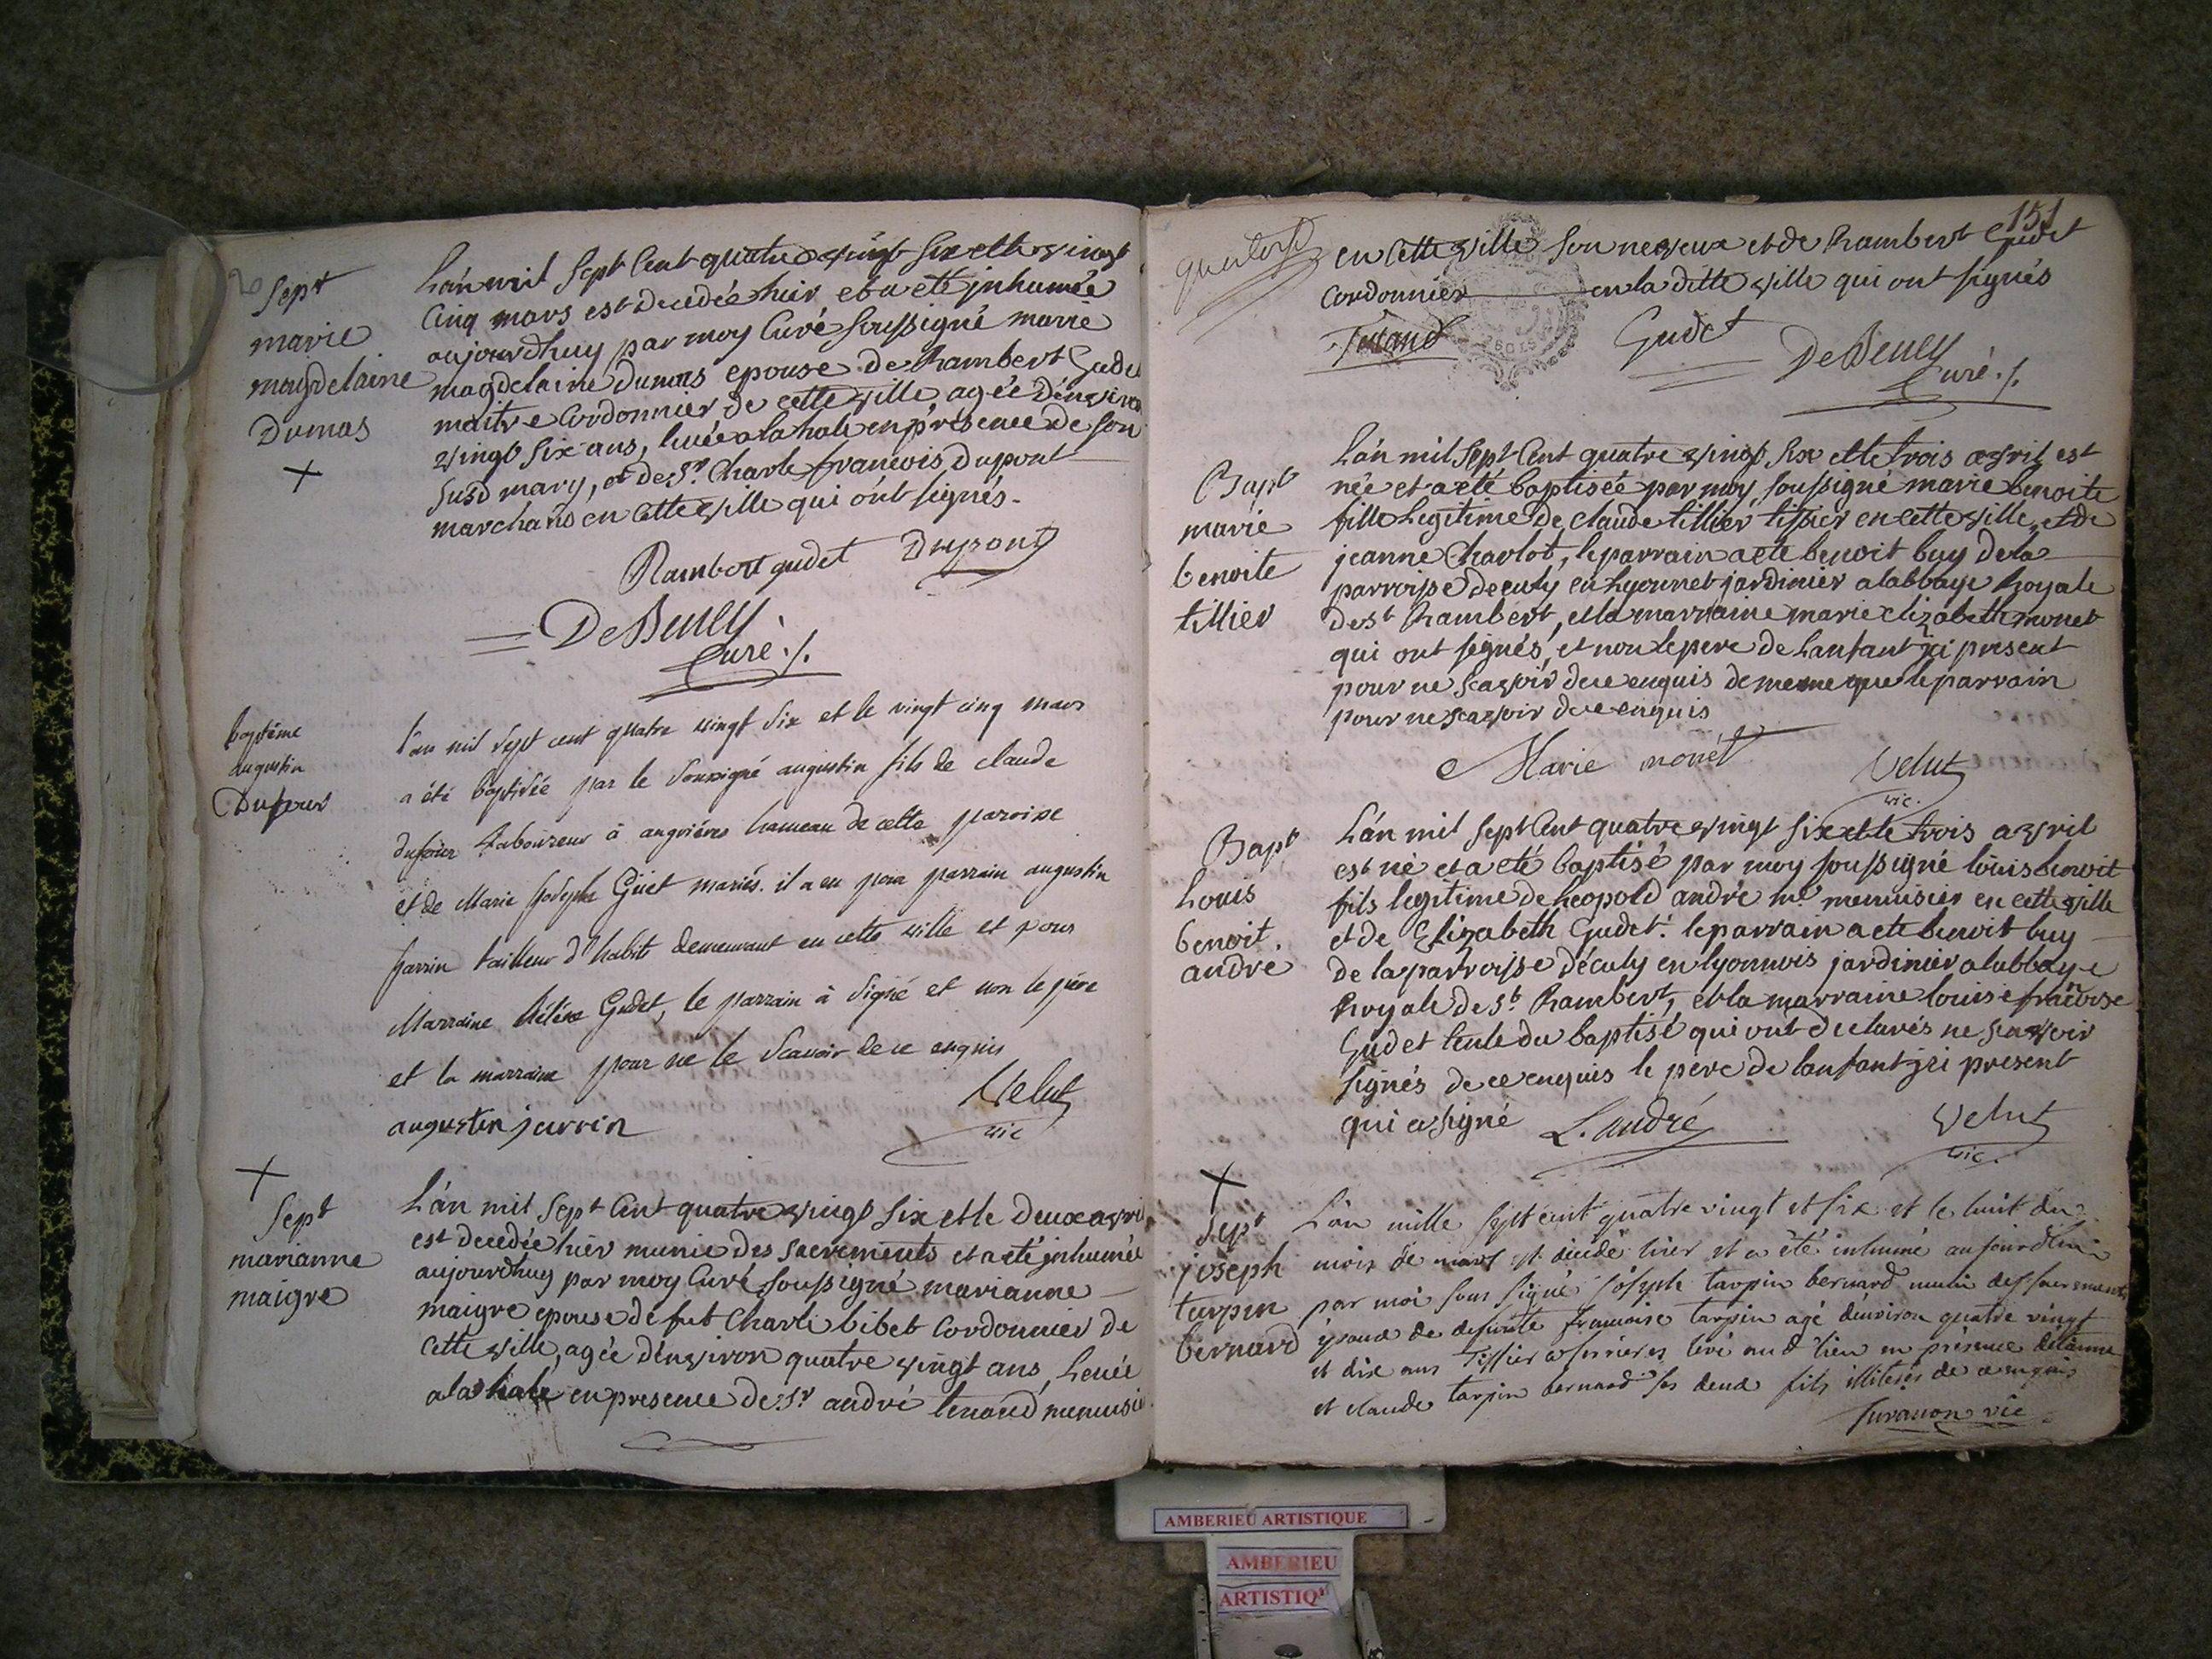 Sept
marie
magdelaine
Dumas
L'an mil sept Cent quatre vingt six et le vingt
Cinq mars est decedée hier et a eté jnhumée
aujourdhuy par moy Curé soussigné marie
magdelaine dumas epouse de Rambert Gudet
maitre Cordonnier de cette ville, agée d'environ
vingt six ans, levée a la hale en présence de son
susd mary, et de Sr. Charle francois Dupont
marchand en cette ville qui ont signés.
Rambert gudet Dupont
De Beney
Curé ./.
baptême
augustin
Dufour
l'an mil sept cent quatre vingt six et le vingt cinq mars
a été baptisée par le soussigné augustin fils de claude
dufour Laboureur à angrières hameau de cette paroisse
et de Marie Joseph Guet mariés. il a eu pour parrain augustin
jarrin tailleur d'habits demeurant en cette ville et pour
Marraine Gudet, le parrain à signé et non le père
et la marraine pour ne le scavoir de ce enquis
Velut
augustin jarrin
vic
Sept
marianne
maigre
L'an mil sept Cent quatre vingt six et le deux avril
est decedée hier munie des sacrements et a eté jnhumée
aujourdhuy par moy Curé soussigné marianne
maigre epouse de fut Charle bibet Cordonnier de
cette ville, agée d'environ quatre vingt ans, Levée
a la hale en presence de Sr andré tenand menuisier
151
en cette ville son neveux et de Rambert Gudet
Cordonnier en la ditte ville qui ont signés
Tenand Gudet De Beney
Curé ./.
Bapt
marie
benoite
tillier
L'an mil sept Cent quatre vingt six et le trois avril est
née et a eté baptisée par moy soussigné marie benoite
fille legitime de claude tillier tissier en cette ville, et de
jeanne Charlot, le parrain a ete benoit buy de la
parroisse deculy en Lyonnet jardinier a labbaye Royale
de St Rambert, et la marraine marie elizabeth monet
qui ont signés, et non le pere de Lanfant jci present
pour ne scavoir de ce enquis de meme que le parrain
pour ne scavoir de ce enquis
Marie monet Velut
vic.
Bapt
Louis
benoit.
andré
L'an mil sept Cent quatre vingt six et le trois avril
est né et a eté baptisé par moy soussigné louis benoit
fils legitime de Leopold andré me menuisier en cette ville
et de Elizabeth Gudet. le parrain a ete benoit buy
de la parroisse déculy en lyonnois jardinier a labbaye
Royale de St. Rambert, et la marraine louise francoise
Gudet tente du baptisé qui ont declarés ne scavoir
signés de ce enquis le pere de lanfant jci present
qui a signé L. andré Velut
vic.
Sept
joseph
turpin
bernard
L'an mille sept cent quatre vingt et six et le huit du
mois de mars est décédé hier et a été inhumé aujourdhui
par moi sous signé joseph tarpin bernard muni des sacrements
epoux de defunte francoise tarpin agé denviron quatre vingt
et dix ans Tissier a serrieres levé aud lieu en présence
et claude tarpin bernard ses deux fils illiterés de ce enquis
Juvanon vic
AMBERIEU ARTISTIQUE
AMBERIEU
ARTISTIQ